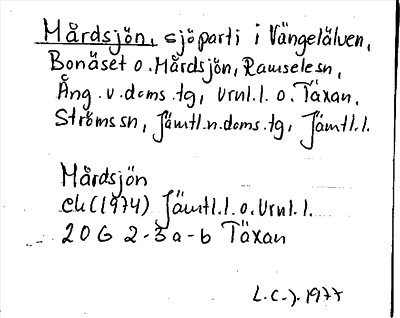 Mårdsjön, sjöparti i Vängelälven,
Bonäset o. Mårdsjön, Ramselesn,
Ång.v.doms.tg, Vrnl.l. o. Täxan,
Strömssn, Jämtl.n.doms.tg, Jämtl.l.
Mårdsjön
ek (1974) Jämtl.l.o.Vrnl.l.
20 G 2-3 a-b Täxan
L.C-J. 1977